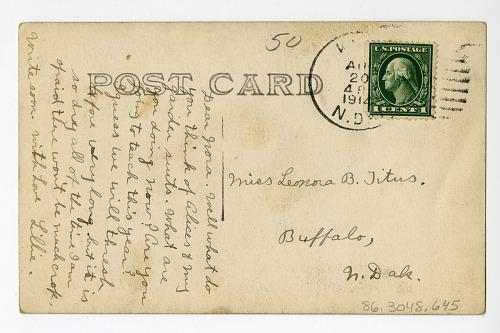 50
POST CARD
AU
20
1914
N.D.
U.S. POSTAGE
1 CENT 1
Dear Nora. Well what do
you think of Chas & my
suits. What are
you doing now? Are you
going to teach this year?
I guess we will thresh
before very long but it is
so dry all of the time I am
afraid there won't be much crop.
Write soon. With Love Lillie.
Miss Leonora B. Titus.
Buffalo,
N. Dak.
86.3048.645